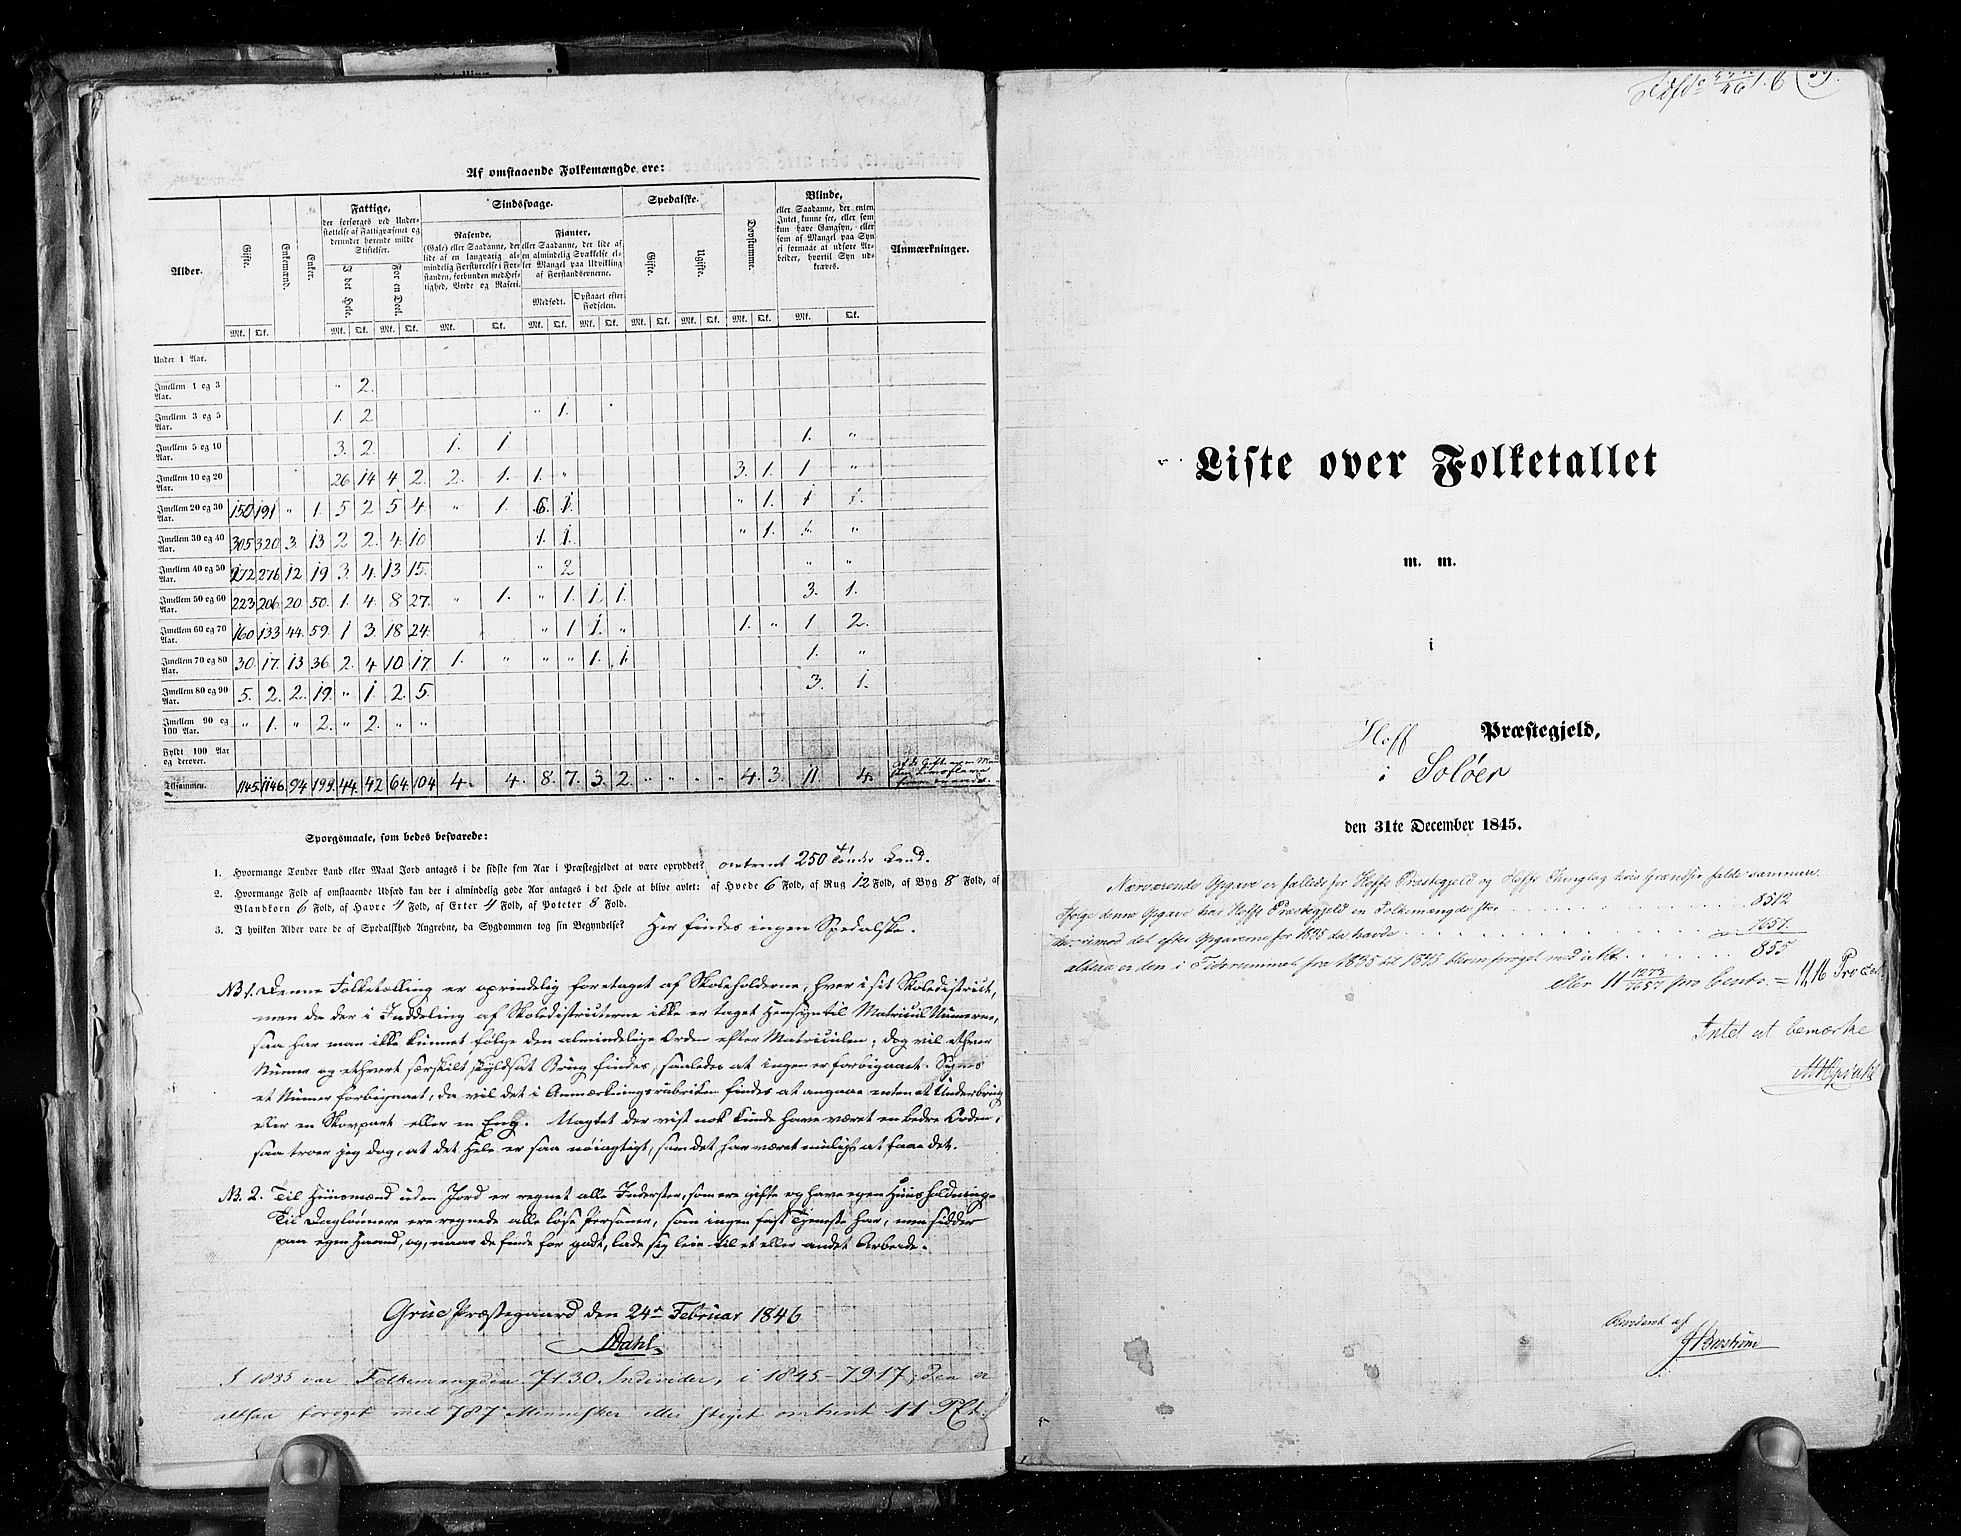 Af omstaaende Folkemængde ere:
Alder. Gifte. Enkemænd. Enker. Fattige, Sindssvage. Spedalske. Døvstumme. Blinde, Anmærkninger.
der forsørges ved Under-
støttelse af Fattigvæsenet og
derunder hørende milde
Stiftelser.
I det Hele. For en Deel.
Rasende,
(Gale) eller Saadanne, der
lide af en langvarig al-
mindelig Forstyrrelse i For-
standen, forbunden med Hef-
tighed, Vrede og Raseri.
Fjanter,
eller Saadanne, der lide af
en almindelig Svækkelse el-
ler Mangel paa Udvikling
af Forstandsevnerne.
Medfødt. Opstaaet efter Fødselen.
Gifte. Ugifte.
eller Saadanne, der enten
Intet kunne see, eller som
kun have Gangsyn, eller
som af Mangel paa Syn
ei formaae at udføre Ar-
beider, hvortil Syn ud-
kræves.
Mk. Qk. Mk. Qk. Mk. Qk. Mk. Qk. Mk. Qk. Mk. Qk. Mk. Qk. Mk. Qk. Mk. Qk. Mk. Qk.
Under 1 Aar.
Imellem 1 og 3 Aar. " 2.
Imellem 3 og 5 Aar. 1. 2 " 1.
Imellem 5 og 10 Aar. 3. 2. 1. 1 1. "
Imellem 10 og 20 Aar. 26 14 4 2. 2. 1. 1. " 3. 1. 1 "
Imellem 20 og 30 Aar. 150 191 " 1. 5 2 5 4. " 1. 6. 1. " 1. 1 1.
Imellem 30 og 40 Aar. 305 320. 3. 13 2 2. 4. 10 1. 1. " 1. 1. "
Imellem 40 og 50 Aar. 272 276 12 19 3. 4. 13 15. " 2 " "
Imellem 50 og 60 Aar. 223 206 20. 50. 1. 4. 8 27. " 1. " 1. 1. 1. 3. 1.
Imellem 60 og 70 Aar. 160 133 44. 59. 1 3. 18 24. " 1 1. " 1. " 1 2.
Imellem 70 og 80 Aar. 30. 17. 13 36. 2. 4 10 17. 1. " " " 1. 1 1. "
Imellem 80 og 90 Aar. 5. 2. 2. 19. " 1 2. 5. 3. 1.
Imellem 90 og 100 Aar. " 1. " 2. " 2. " "
Fyldt 100 Aar og derover.
Tilsammen. 1145. 1146. 94. 199. 44. 42 64. 104 4. 4. 8. 7. 3. 2. " " " " 4. 3. 11. 4.
Spørgsmaale, som bedes besvarede:
1. Hvormange Tønder Land eller Maal Jord antages i de sidste fem Aar i Præstegjeldet at være opryddet? omtrent 250 Tønder Land.
2. Hvormange Fold af omstaaende Udsæd kan der i almindelig gode Aar antages i det Hele at blive avlet: af Hvede 6 Fold, af Rug 12 Fold, af Byg 8 Fold, af
Blandkorn 6 Fold, af Havre 4 Fold, af Erter 4 Fold, af Poteter 8 Fold.
3. I hvilken Alder vare de af Spedalskhed Angrebne, da Sygdommen tog sin Begyndelse? Her findes ingen Spedalske.
NB 1. Denne Folketælling er oprindelig foretaget af Skoleholderne, hver i sit Skoledistrict,
men da der i Inddeling af Skoledistricterne ikke er taget Hensyn til Matricul Numerne,
saa har man ikke kunnet følge den almindelige Orden efter Matriculen; dog vil ethvert
Numer og ethvert særskilt skyldsat Brug findes, saaledes at ingen er forbigaaet. Synes
et Numer forbigaaet, da vil det i Anmærkningsrubriken findes at angaae enten et Underbrug
eller en Skovpart eller en Eng. Uagtet der vist nok kunde have været en bedre Orden,
saa troer jeg dog, at det Hele er saa nøiagtigt, som det har været muligt at faae det.
NB. 2. Til Huusmænd uden Jord er regnet alle Inderster, som ere gifte og have egen Huusholdning.
Til Daglønnere ere regnede alle løse Personer, som ingen fast Tjeneste har, men sidder
paa egen Haand, og, naar de finde for godt, lade sig leie til et eller andet Arbeide.
Grue Præstegaard den 24de Februar 1846
Dahl
I 1835 var Folkemængden 7130 Individer, i 1845 - 7917, den er
altsaa forøget med 787 Mennesker eller steget omtrent 11 PCt.
Liste over Folketallet
m. m.
i
Hoff Præstegjeld,
i Soløer
den 31te December 1845.
Nærværende Opgave er fælleds for Hoffs Præstegjeld og Hoffs Thinglag hvis Grændser falde sammen.
Ifølge denne Opgave har Hoffs Præstegjeld en Folkemængde stor 8512
hvorimod det efter Opgaverne for 1835 da havde 7657.
altsaa er den i Tidsrummet fra 1835 til 1845 bleven forøget med i Alt 855
eller 11 1273/7657 pro Cento. = 11,16 Procent
Intet at bemærke
Revideret af